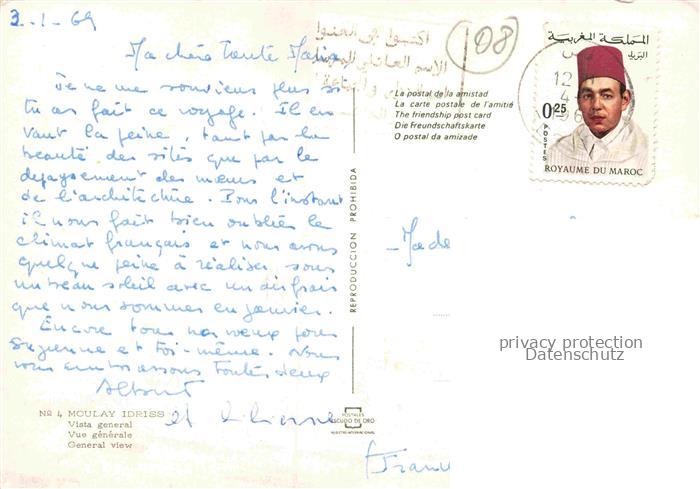 3-1-69
Ma chère Tante Marie
Je ne me souviens plus si
tu as fait ce voyage. Il en
vaut la peine, tant par la
beauté des sites que par le
dépaysement des mœurs et
de l'architecture. Pour l'instant
il nous fait bien oublier le
climat français et nous avons
quelque peine à réaliser sous
un beau soleil avec un air frais
que nous sommes en janvier.
Encore tous nos vœux pour
Suzanne et toi-même. Nous
vous embrassons toutes deux
Albert
et
No 4 MOULAY IDRISS
Vista general
Vue générale
General view
REPRODUCCION PROHIBIDA
POSTALES
ESCUDO DE ORO
(08)
La postal de la amistad
La carte postale de l'amitié
The friendship post card
Die Freundschaftskarte
O postal da amizade
المملكة المغربية
البريد
0F25
POSTES
ROYAUME DU MAROC
12
4
Made
privacy protection
Datenschutz
Fran